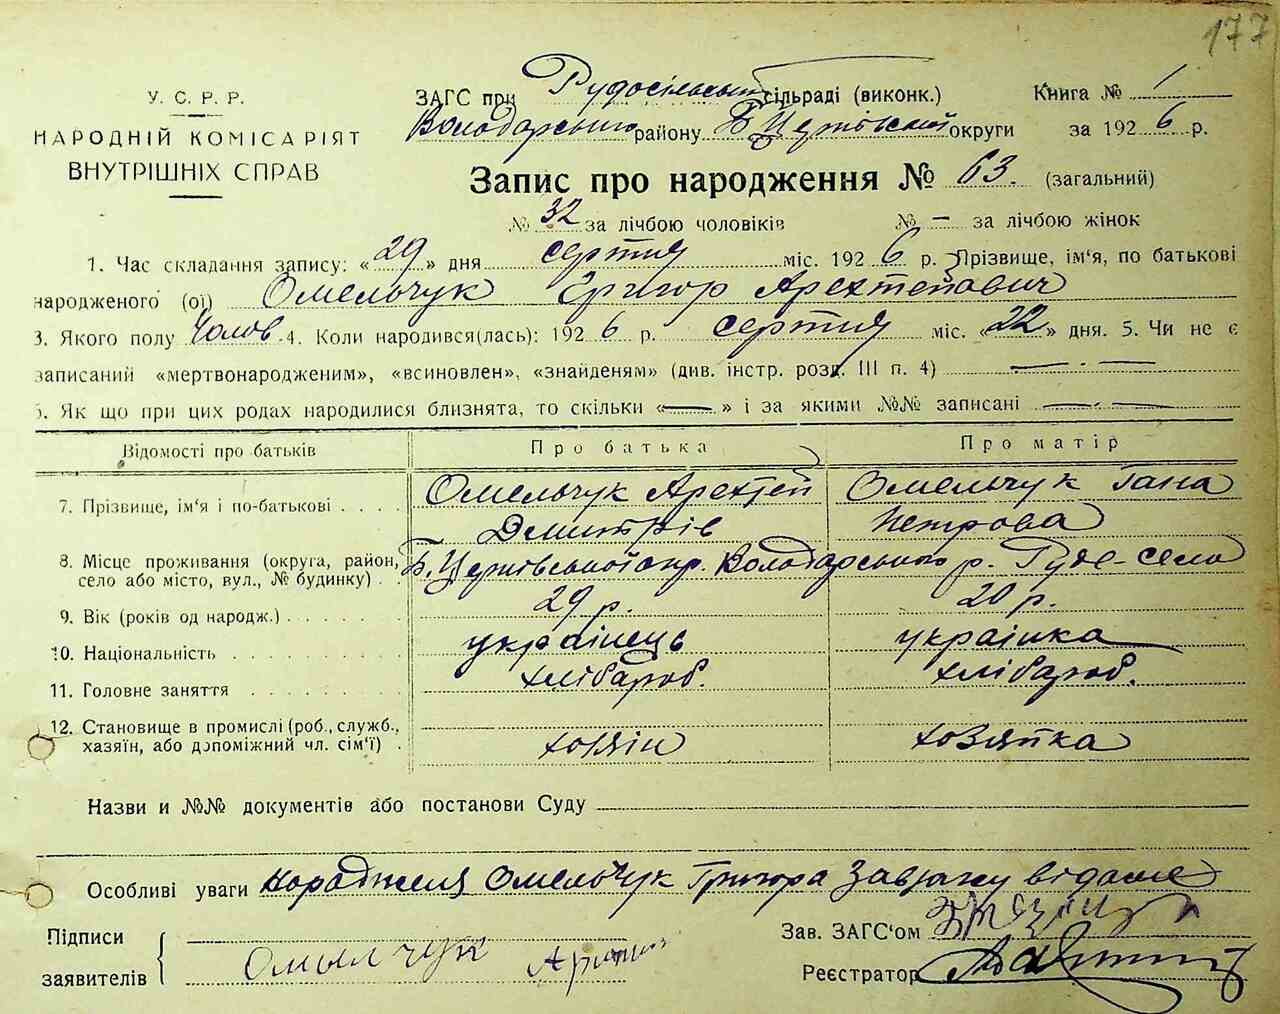 177
У. С. Р. Р.
НАРОДНІЙ КОМІСАРІЯТ
ВНУТРІШНІХ СПРАВ
ЗАГС при Рудосільській сільраді (виконк.) Книга № 1
Володарського району Б Церківської округи за 1926 р.
Запис про народження № 63. (загальний)
№ 32 за лічбою чоловіків № — за лічбою жінок
1. Час складання запису: «29» дня серпня міс. 1926 р. Прізвище, ім'я, по батькові
народженого (ої) Омельчук Григор Архтепович
3. Якого полу Чолов. 4. Коли народився(лась): 1926 р. серпня міс. «22» дня. 5. Чи не є
записаний «мертвонародженим», «всиновлен», «знайденям» (див. інстр. розд. III п. 4) — . —
6. Як що при цих родах народилися близнята, то скільки «—» і за якими №№ записані — . —
Відомості про батьків Про батька Про матір
7. Прізвище, ім'я і по-батькові . . . . Омельчук Архтеп Омельчук Гана
Дмитрів Петрова
8. Місце проживання (округа, район, село або місто, вул., № будинку) . Б. Церківської окр. Володарського р. Руде-село
9. Вік (років од народж.) . . . . . . 29 р. 20 р.
10. Національність . . . . . . . . українець українка
11. Головне заняття . . . . . . . хлібароб. хлібароб.
12. Становище в промислі (роб., служб.,
хазяїн, або допоміжний чл. сім'ї) . хозяін хозяйка
Назви и №№ документів або постанови Суду
Особливі уваги народження Омельчук Григора
Підписи
заявителів Омылчук
Зав. ЗАГС'ом
Реєстратор